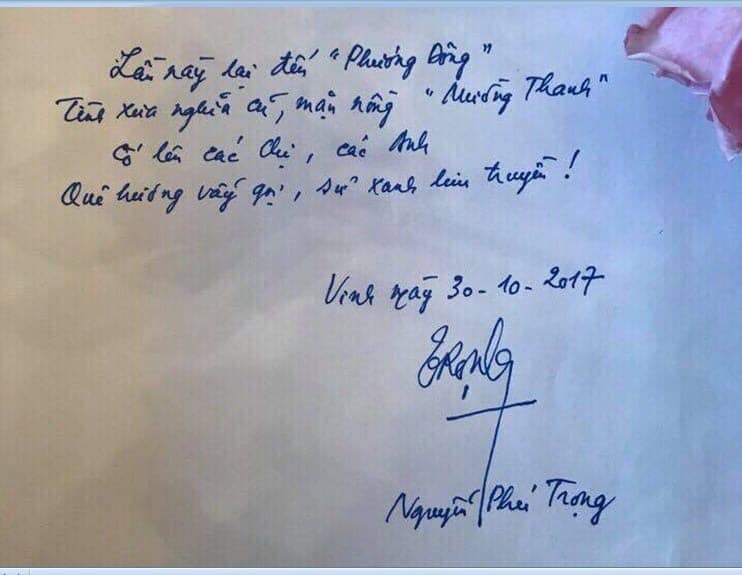 Lần này lại đến "Phương Đông"
Tình xưa nghĩa cũ, mặn nồng "Mường Thanh"
Cố lên các chị, các Anh
Quê hương vẫy gọi, sử xanh lưu truyền!
Vinh ngày 30-10-2017
Trọng
Nguyễn Phú Trọng